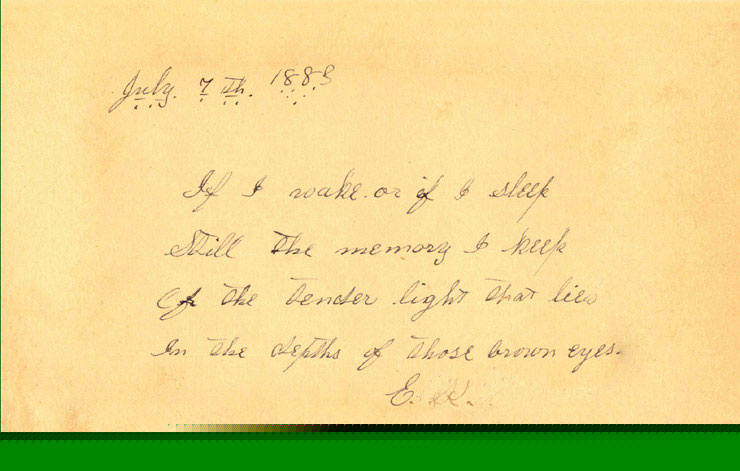 July. 7 th. 1883
If I wake. or if I sleep
Still the memory I keep
Of the tender light that lies
In the depths of those brown eyes.
E. K.